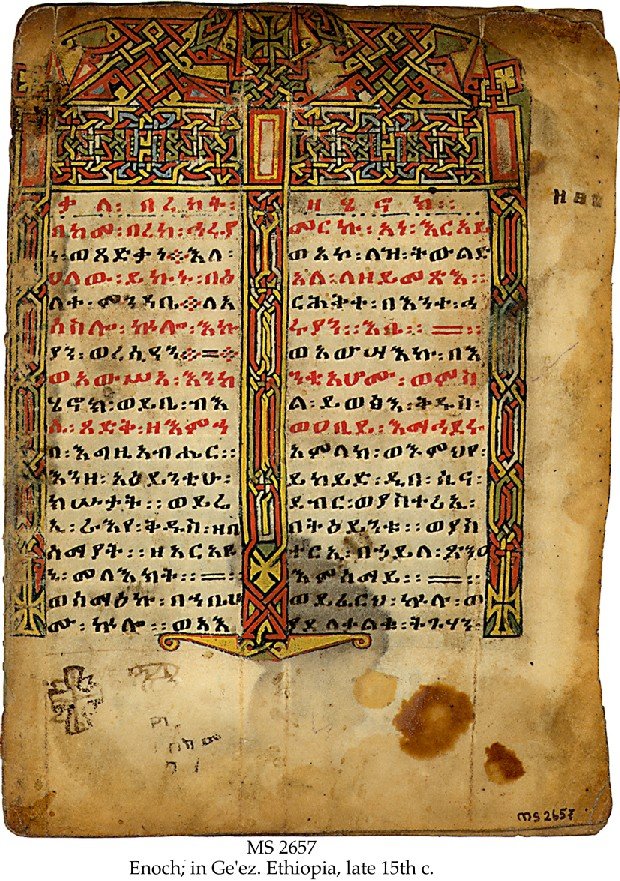 ቃለ፡ በረከት፡
በከመ፡ ባረከ፡ ኅሩያ
ነ፡ ወጻድቃነ፡ እለ፡
ሀለዉ፡ ይኩኑ፡ በዕ
ለተ፡ ምንዳቤ፡ ለአ
ሰስሎ፡ ኵሎ፡ እኩ
ያን፡ ወረሲዓን፡
ወአውሥአ፡ እንከ
ሄኖክ፡ ወይቤ፡ ብእ
ሲ፡ ጻድቅ፡ ዘእምኀ
በ፡ እግዚአብሔር፡፡
እንዘ፡ አዕይንቲሁ፡
ክሡታት፡፡ ወይሬ
ኢ፡ ራእየ፡ ቅዱስ፡ ዘበ
ሰማያት፡፡ ዘአርአዩ
ኒ፡ መላእክት፡፡
ወሰማዕኩ፡ በኀቤሆ
ሙ፡ ኵሎ፡፡ ወአእ
ዘሄኖክ፡፡
መርኩ፡ አነ፡ እርእይ
ወአኮ፡ ለዝ፡ ትውልድ
አላ፡ ለዘይመጽእ፡፡
በእንተ፡ ኅ
ሩያን፡፡ እቤ፡፡
ወአውሣእኩ፡ በእ
ንቲአሆሙ፡ ወምስ
ለ፡ ይወፅእ፡ ቅዱስ፡
ወዐቢይ፡ እማኅደሩ
አምላክ፡ ወእምህየ፡
ይከይድ፡ ዲበ፡ ሲና፡
ደብር፡ ወያስተርኢ፡
በትዕይንቱ፡፡ ወያስ
ተርኢ፡ በኃይለ፡ ጽንዐ
እምሰማይ፡፡
ወይፈርህ፡ ኵሉ፡ ወ
ያደለቀልቁ፡ ትጉሃን
MS 2657
MS 2657
Enoch; in Ge'ez. Ethiopia, late 15th c.